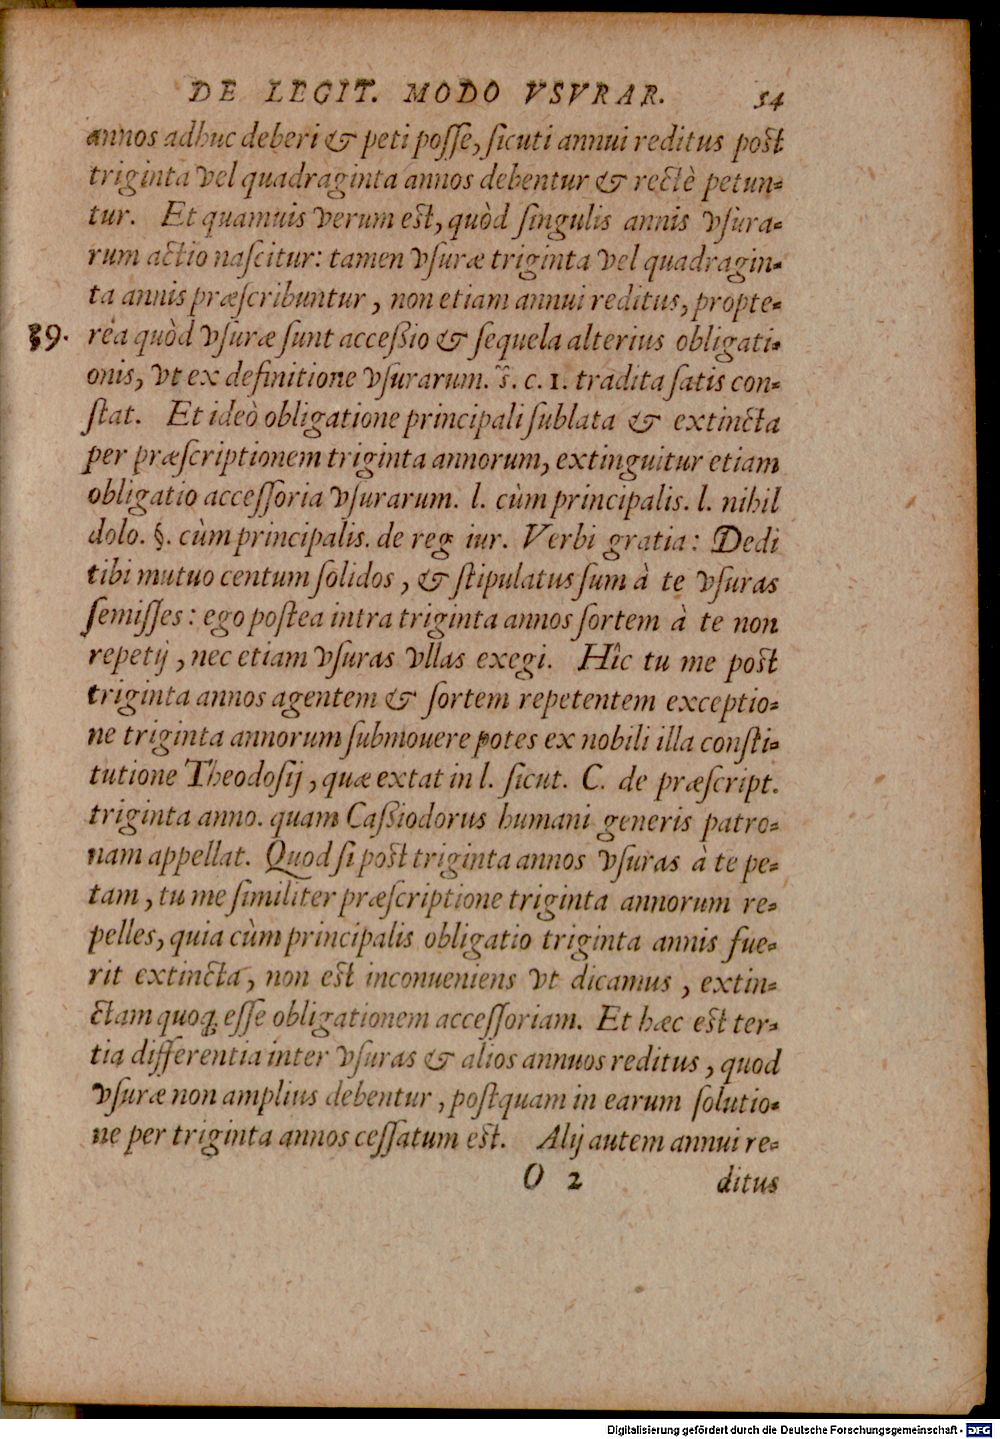 DE LEGIT. MODO VSVRAR. 54
annos adhuc deberi & peti posse, sicuti annui reditus post
triginta vel quadraginta annos debentur & rectè petun-
tur. Et quamuis verum est, quòd singulis annis vsura-
rum actio nascitur: tamen vsuræ triginta vel quadragin-
ta annis præscribuntur, non etiam annui reditus, propte-
39. rea quòd vsuræ sunt accessio & sequela alterius obligati-
onis, vt ex definitione vsurarum. s̃. c. 1. tradita satis con-
stat. Et ideò obligatione principali sublata & extincta
per præscriptionem triginta annorum, extinguitur etiam
obligatio accessoria vsurarum. l. cùm principalis. l. nihil
dolo. §. cùm principalis. de reg iur. Verbi gratia: Dedi
tibi mutuo centum solidos, & stipulatus sum à te vsuras
semisses: ego postea intra triginta annos sortem à te non
repetij, nec etiam vsuras vllas exegi. Hîc tu me post
triginta annos agentem & sortem repetentem exceptio-
ne triginta annorum submouere potes ex nobili illa consti-
tutione Theodosij, quæ extat in l. sicut. C. de præscript.
triginta anno. quam Cassiodorus humani generis patro-
nam appellat. Quod si post triginta annos vsuras à te pe-
tam, tu me similiter præscriptione triginta annorum re-
pelles, quia cùm principalis obligatio triginta annis fue-
rit extincta, non est inconueniens vt dicamus, extin-
ctam quoq; esse obligationem accessoriam. Et hæc est ter-
tia differentia inter vsuras & alios annuos reditus, quod
vsuræ non amplius debentur, postquam in earum solutio-
ne per triginta annos cessatum est. Alij autem annui re-
O 2 ditus
Digitalisierung gefördert durch die Deutsche Forschungsgemeinschaft - DFG